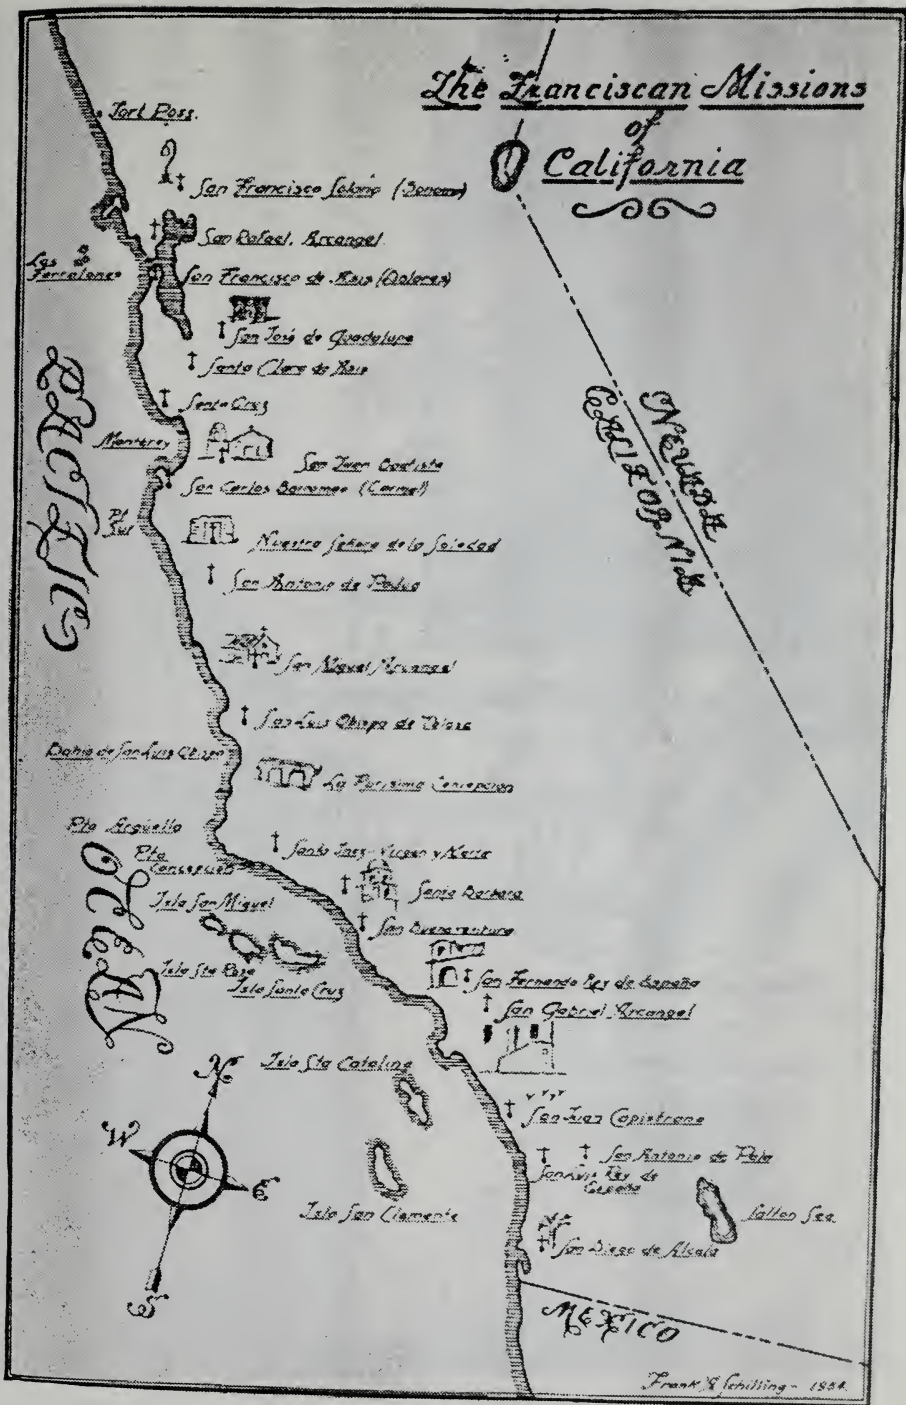 The Franciscan Missions
of
California
Fort Ross.
San Francisco Solano (Sonoma)
San Rafael, Arcangel
Los
Farralones
San Francisco de Asis (Dolores)
San José de Guadalupe
Santa Clara de Asis
Santa Cruz
Monterey
San Juan Bautista
San Carlos Borromeo (Carmel)
Pt.
Sur
Nuestra Señora de la Soledad
San Antonio de Padua
San Miguel Arcangel
San Luis Obispo de Tolosa
Bahia de San Luis Obispo
La Purisima Concepcion
Pto Argüello
Pto
Concepcion
Santa Inez - Virgen y Martir
Santa Barbara
Isla San Miguel
San Buenaventura
Isla Sta Rosa
Isla Santa Cruz
San Fernando Rey de España
San Gabriel Arcangel
Isla Sta Catalina
San Juan Capistrano
San Antonio de Pala
San Luis Rey de
España
Isla San Clemente
Salton Sea
San Diego de Alcala
PACIFIC
OCEAN
NEVADA
CALIFORNIA
MEXICO
N
W
E
S
Frank Schilling - 1934